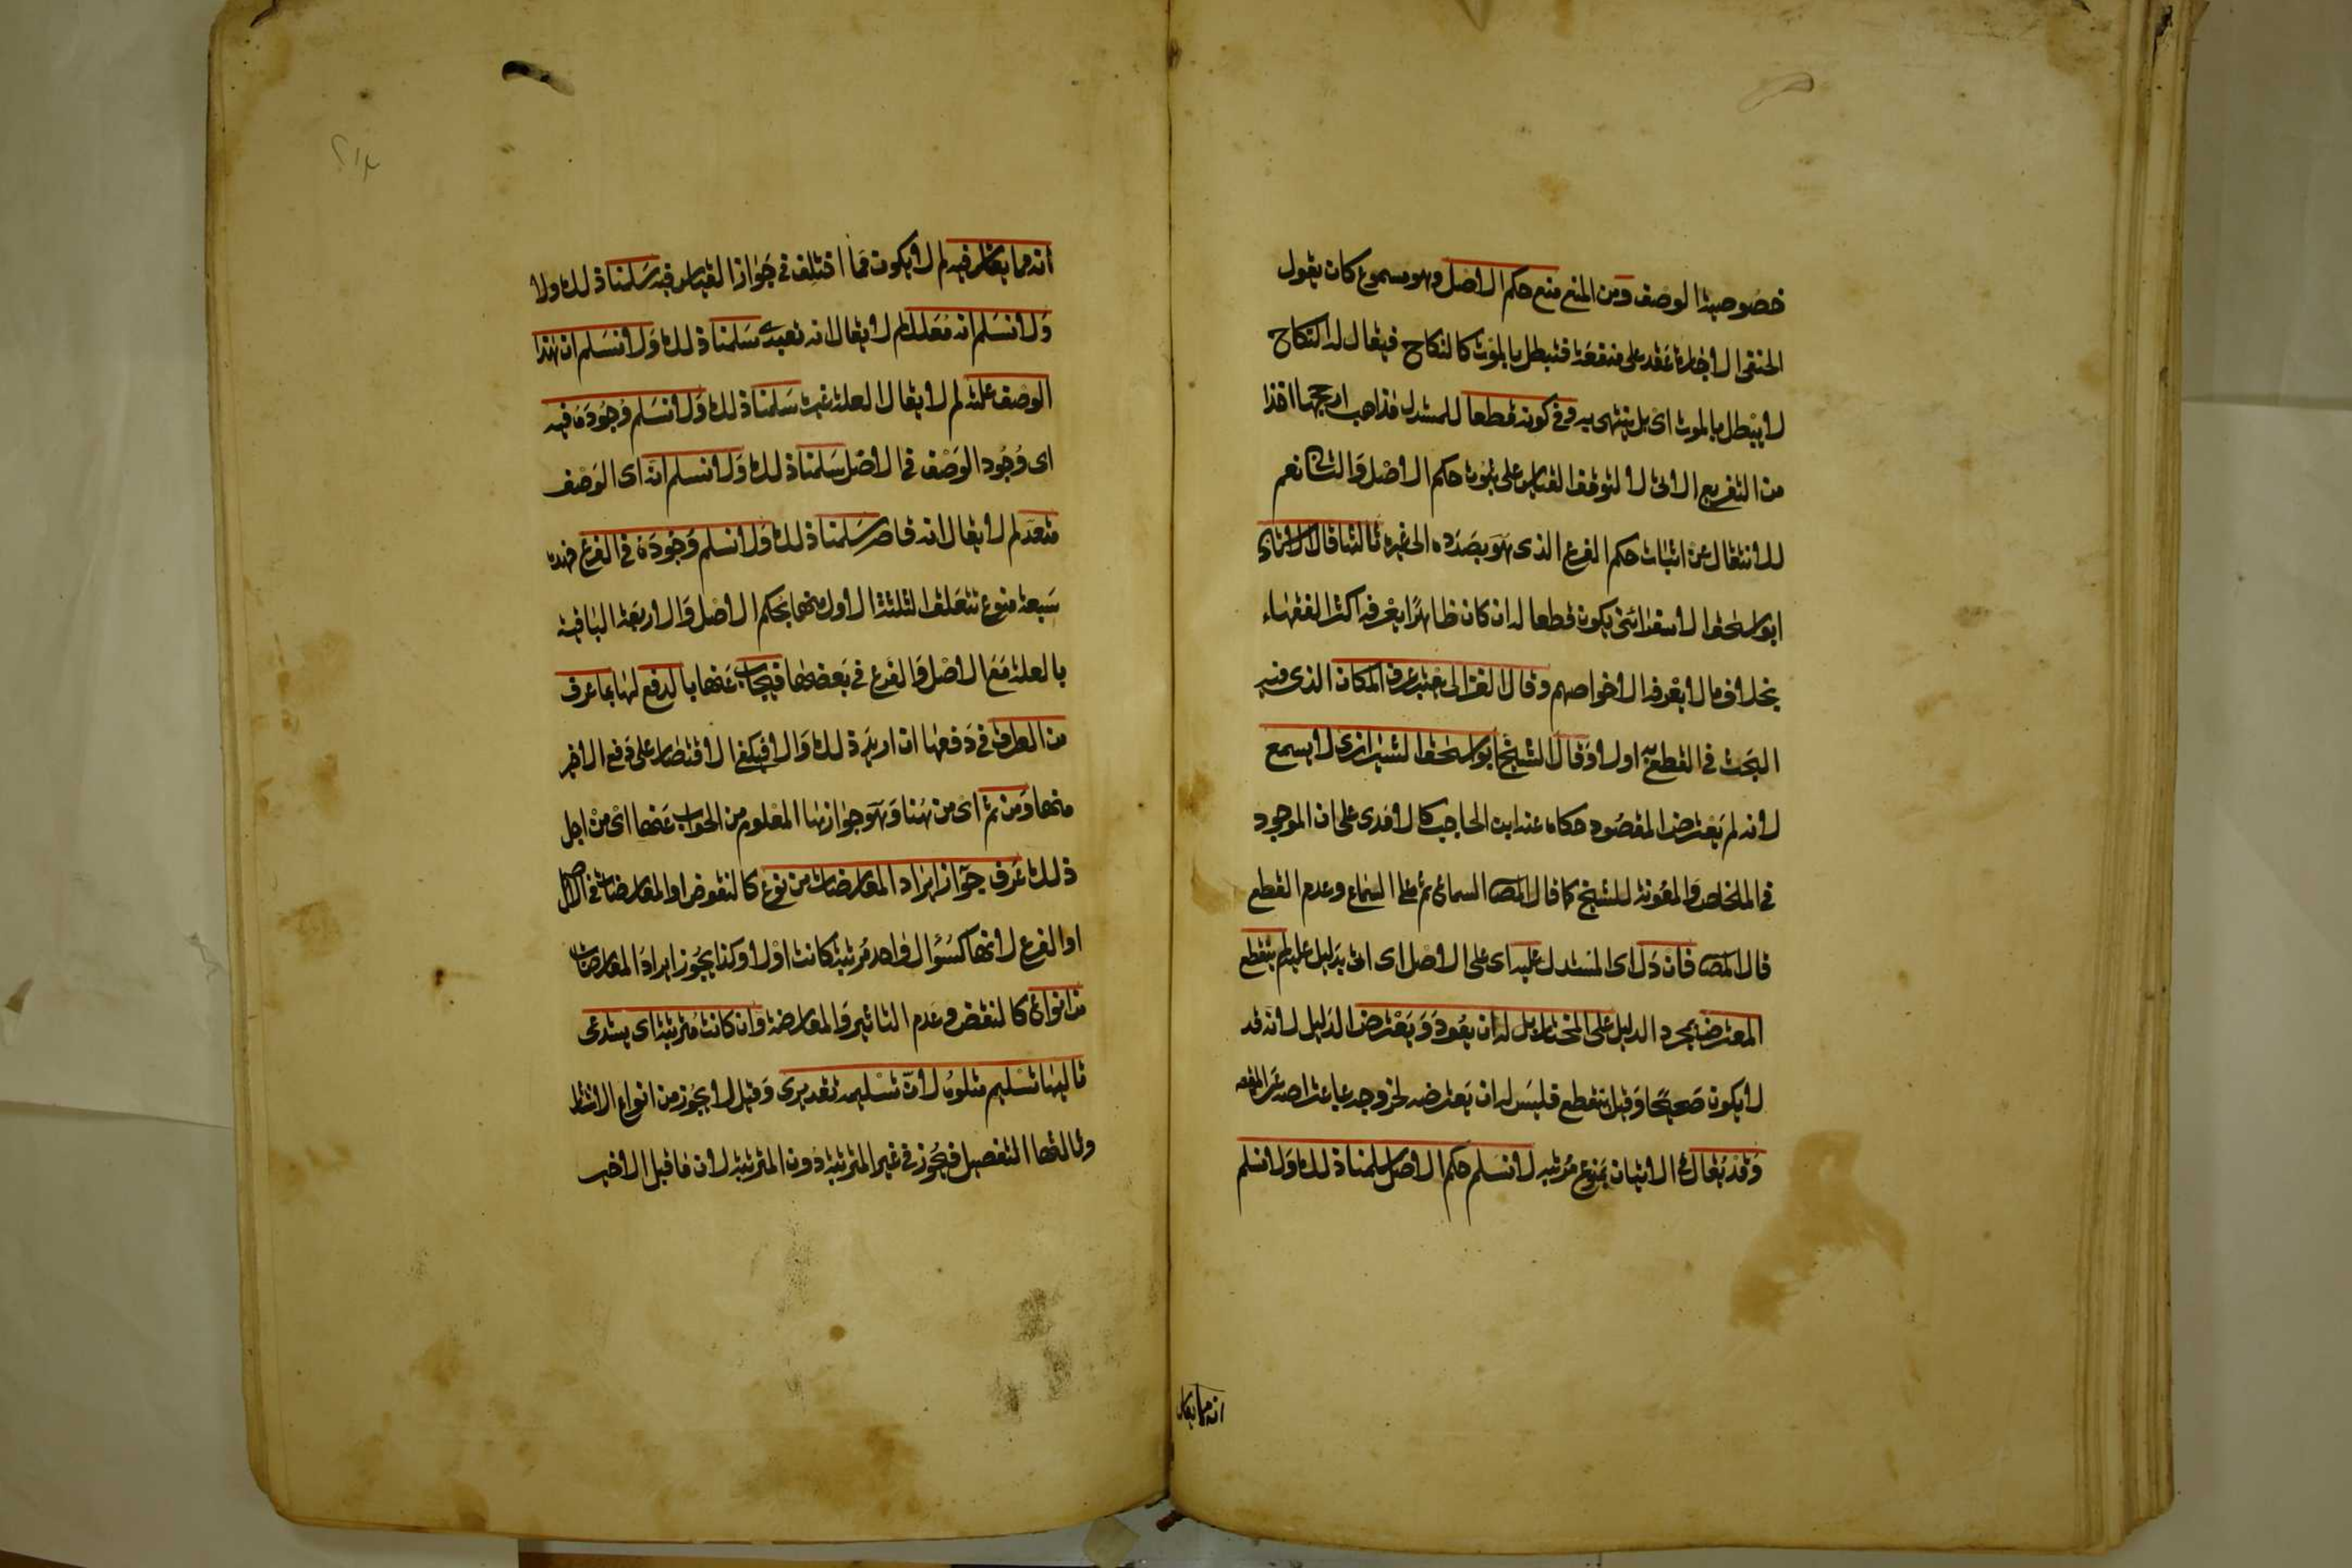 خصوصية الوصف ومن المنع منع حكم الاصل وهو مسموع كان يقول
الحنفى الاجارة عقد على منفعة فتبطل بالموت كالنكاح فيقال له النكاح
لا يبطل بالموت اى بل ينتهى به وفى كونه قطعا للمستدل مذاهب ارجحها اخذا
من التفريع الاتى لا لتوقف القياس على ثبوت حكم الاصل والثانى نعم
للانتقال عن اثبات حكم الفرع الذى هو بصدده الى غيره ثالثها قال الاستاذ
ابو اسحق الاسفرائنى يكون قطعا له ان كان ظاهرًا يعرفه اكثر الفقهاء
بخلاف ما لا يعرفه الا خواصهم وقال الغزالى يعتبر عرف المكان الذى فيه
البحث فى القطع به اولا وقال الشيخ ابو اسحق الشيرازى لا يسمع
لانه لم يعترض المقصود حكاه عنه ابن الحاجب كالامدى على ان الموجود
فى الملخص والمعونة للشيخ كما قال المصـ السماع ثم على السماع وعدم القطع
قال المصـ فان دل اى المستدل عليه اى على الاصل اى اتى بدليل عليه لم ينقطع
المعترض بمجرد الدليل على المختار بل له ان يعود ويعترض الدليل لانه قد
لا يكون صحيحا وقيل ينقطع فليس له ان يعترضه لخروجه باعتراضه عن المقصـ
وقد يقال فى الاتيان بمنوع مرتبة لا نسلم حكم الاصل سلمنا ذلك ولا نسلم
انه مما يقاس
انه مما يقاس فيه لم لا يكون مما اختلف فى جواز القياس فيه سلمنا ذلك ولا
ولا نسلم انه معلل لم لا يقال انه تعبدى سلمنا ذلك ولا نسلم ان هذا
الوصف علته لم لا يقال العلة غيره سلمنا ذلك ولا نسلم وجوده فيه
اى وجود الوصف فى الاصل سلمنا ذلك ولا نسلم انه اى الوصف
متعد لم لا يقال انه قاصر سلمنا ذلك ولا نسلم وجوده فى الفرع فهذه
سبعة منوع تتعلق الثلثة الاول منها بحكم الاصل والاربعة الباقية
بالعلة مع الاصل والفرع فى بعضها فيجاب عنها بالدفع لها بما عرف
من الطرق فى دفعها ان اريد ذلك والا فيكفى الاقتصار على دفع الاخير
منها ومن ثم اى من هنا وهو جوازها المعلوم من الجواب عنها اى من اجل
ذلك عرف جواز ايراد المعارضات من نوع كالنقوض او المعارضات فى الاصل
او الفرع لانها كسؤال واحد مرتبة كانت اولا وكذا يجوز ايراد المعارضات
من انواع كالنقض وعدم التاثير والمعارضة وان كانت مترتبة اى يستدعى
تاليها تسليم متلوه لان تسليمه تقديرى وقيل لا يجوز من انواع للانتشار
وثالثها التفصيل فيجوز فى غير المترتبة دون المترتبة لان ما قبل الاخير